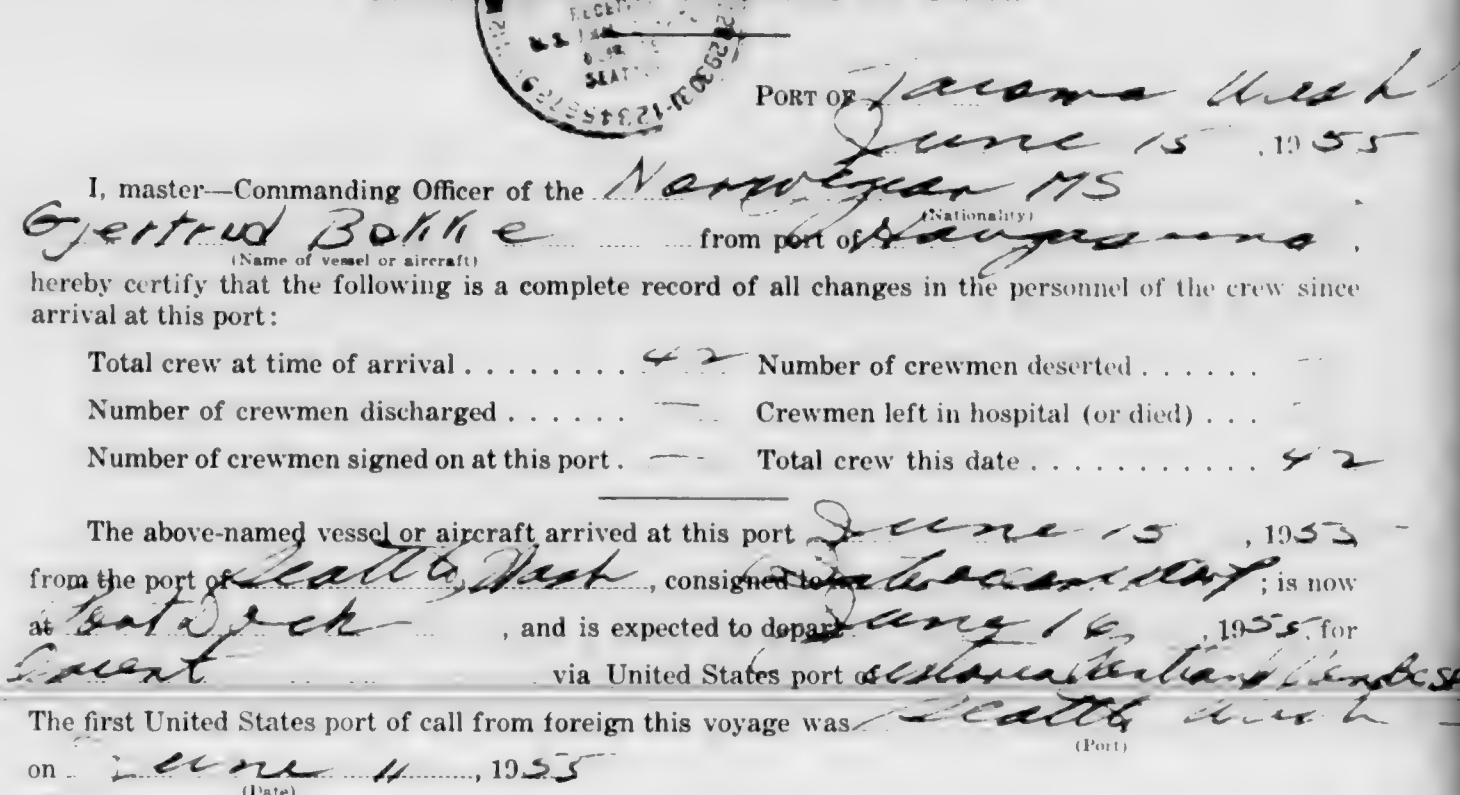 SEAT
PORT OF Tacoma Wash
June 15, 1955
I, master—Commanding Officer of the Norwegian MS
(Nationality)
Gjertrud Bakke from port of Haugesund,
(Name of vessel or aircraft)
hereby certify that the following is a complete record of all changes in the personnel of the crew since
arrival at this port:
Total crew at time of arrival . . . . . . . . 42 Number of crewmen deserted . . . . . . -
Number of crewmen discharged . . . . . . — Crewmen left in hospital (or died) . . . -
Number of crewmen signed on at this port . — Total crew this date . . . . . . . . . . . 42
The above-named vessel or aircraft arrived at this port June 15, 1955
from the port of Seattle, Wash, consigned to Interocean Corp; is now
at Port Dock, and is expected to depart June 16, 1955, for
Orient via United States port of Astoria Portland
The first United States port of call from foreign this voyage was Seattle Wash
(Port)
on June 11, 1955
(Date)